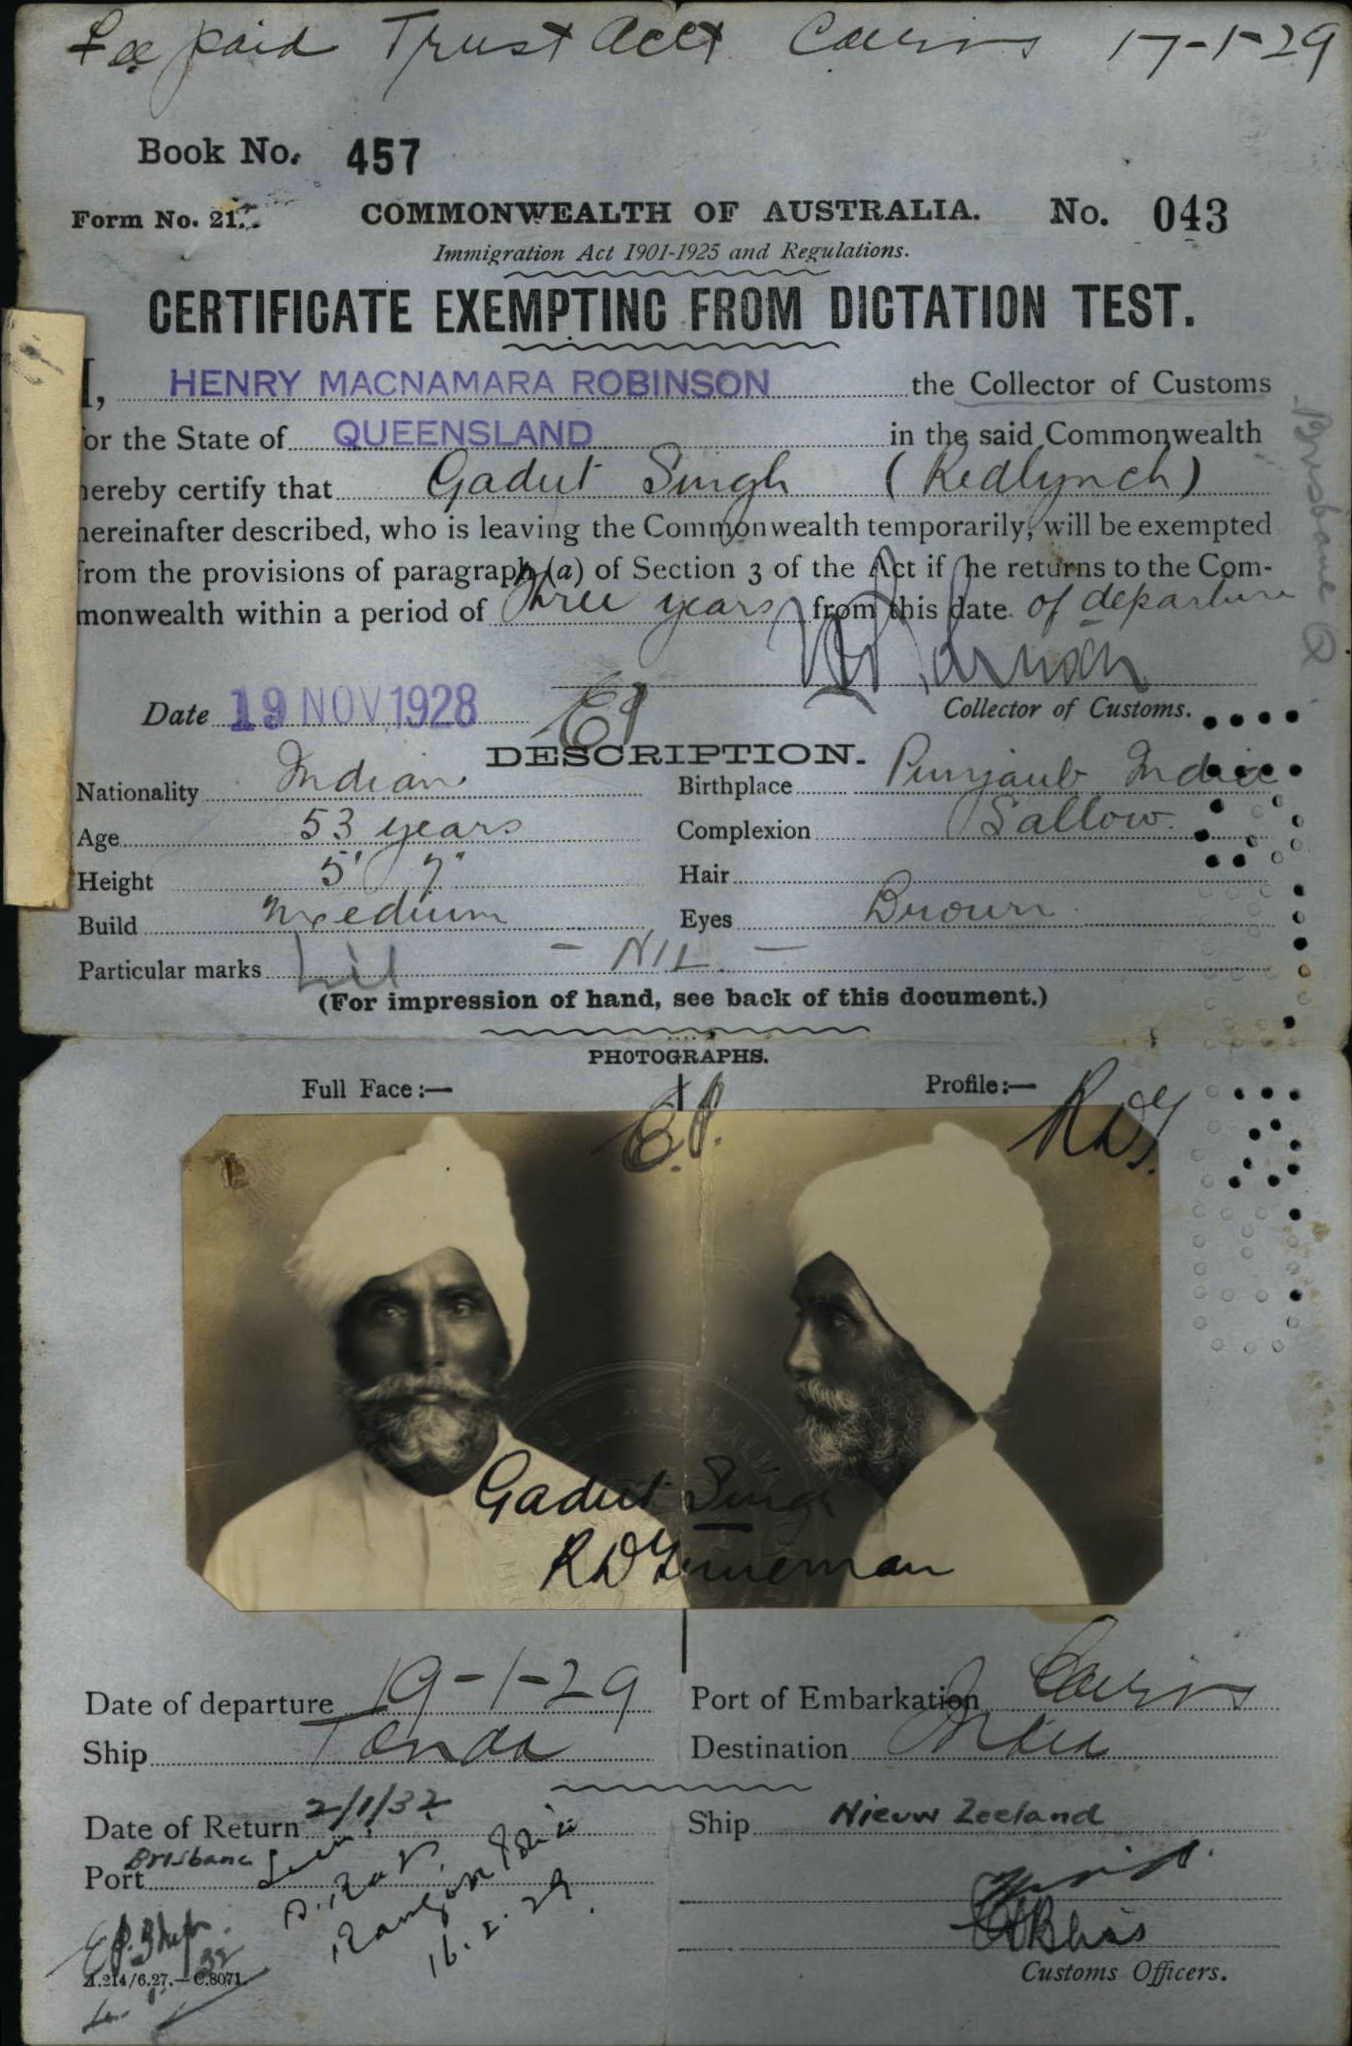 Fee paid Trust Acct Cairns 17-1-29
Book No. 457
Form No. 21.
COMMONWEALTH OF AUSTRALIA. No. 043
Immigration Act 1901-1925 and Regulations.
CERTIFICATE EXEMPTING FROM DICTATION TEST.
I, HENRY MACNAMARA ROBINSON the Collector of Customs
for the State of QUEENSLAND in the said Commonwealth
hereby certify that Gadut Singh (Redlynch)
hereinafter described, who is leaving the Commonwealth temporarily, will be exempted
from the provisions of paragraph (a) of Section 3 of the Act if he returns to the Com-
monwealth within a period of Three years from this date of departure
Brisbane Q
Date 19 NOV 1928
Collector of Customs.
DESCRIPTION.
Nationality Indian Birthplace Punjaub India
Age 53 years Complexion Sallow
Height 5' 7" Hair
Build Medium Eyes Brown
Particular marks - NIL -
(For impression of hand, see back of this document.)
PHOTOGRAPHS.
Full Face:— Profile:—
E.P.
Gadut Singh
Date of departure 19-1-29 Port of Embarkation Cairns
Ship Tanda Destination India
Date of Return 2/1/32 Ship Nieuw Zeeland
Port Brisbane
16.2.29
Customs Officers.
A.214/6.27.—C.8071.